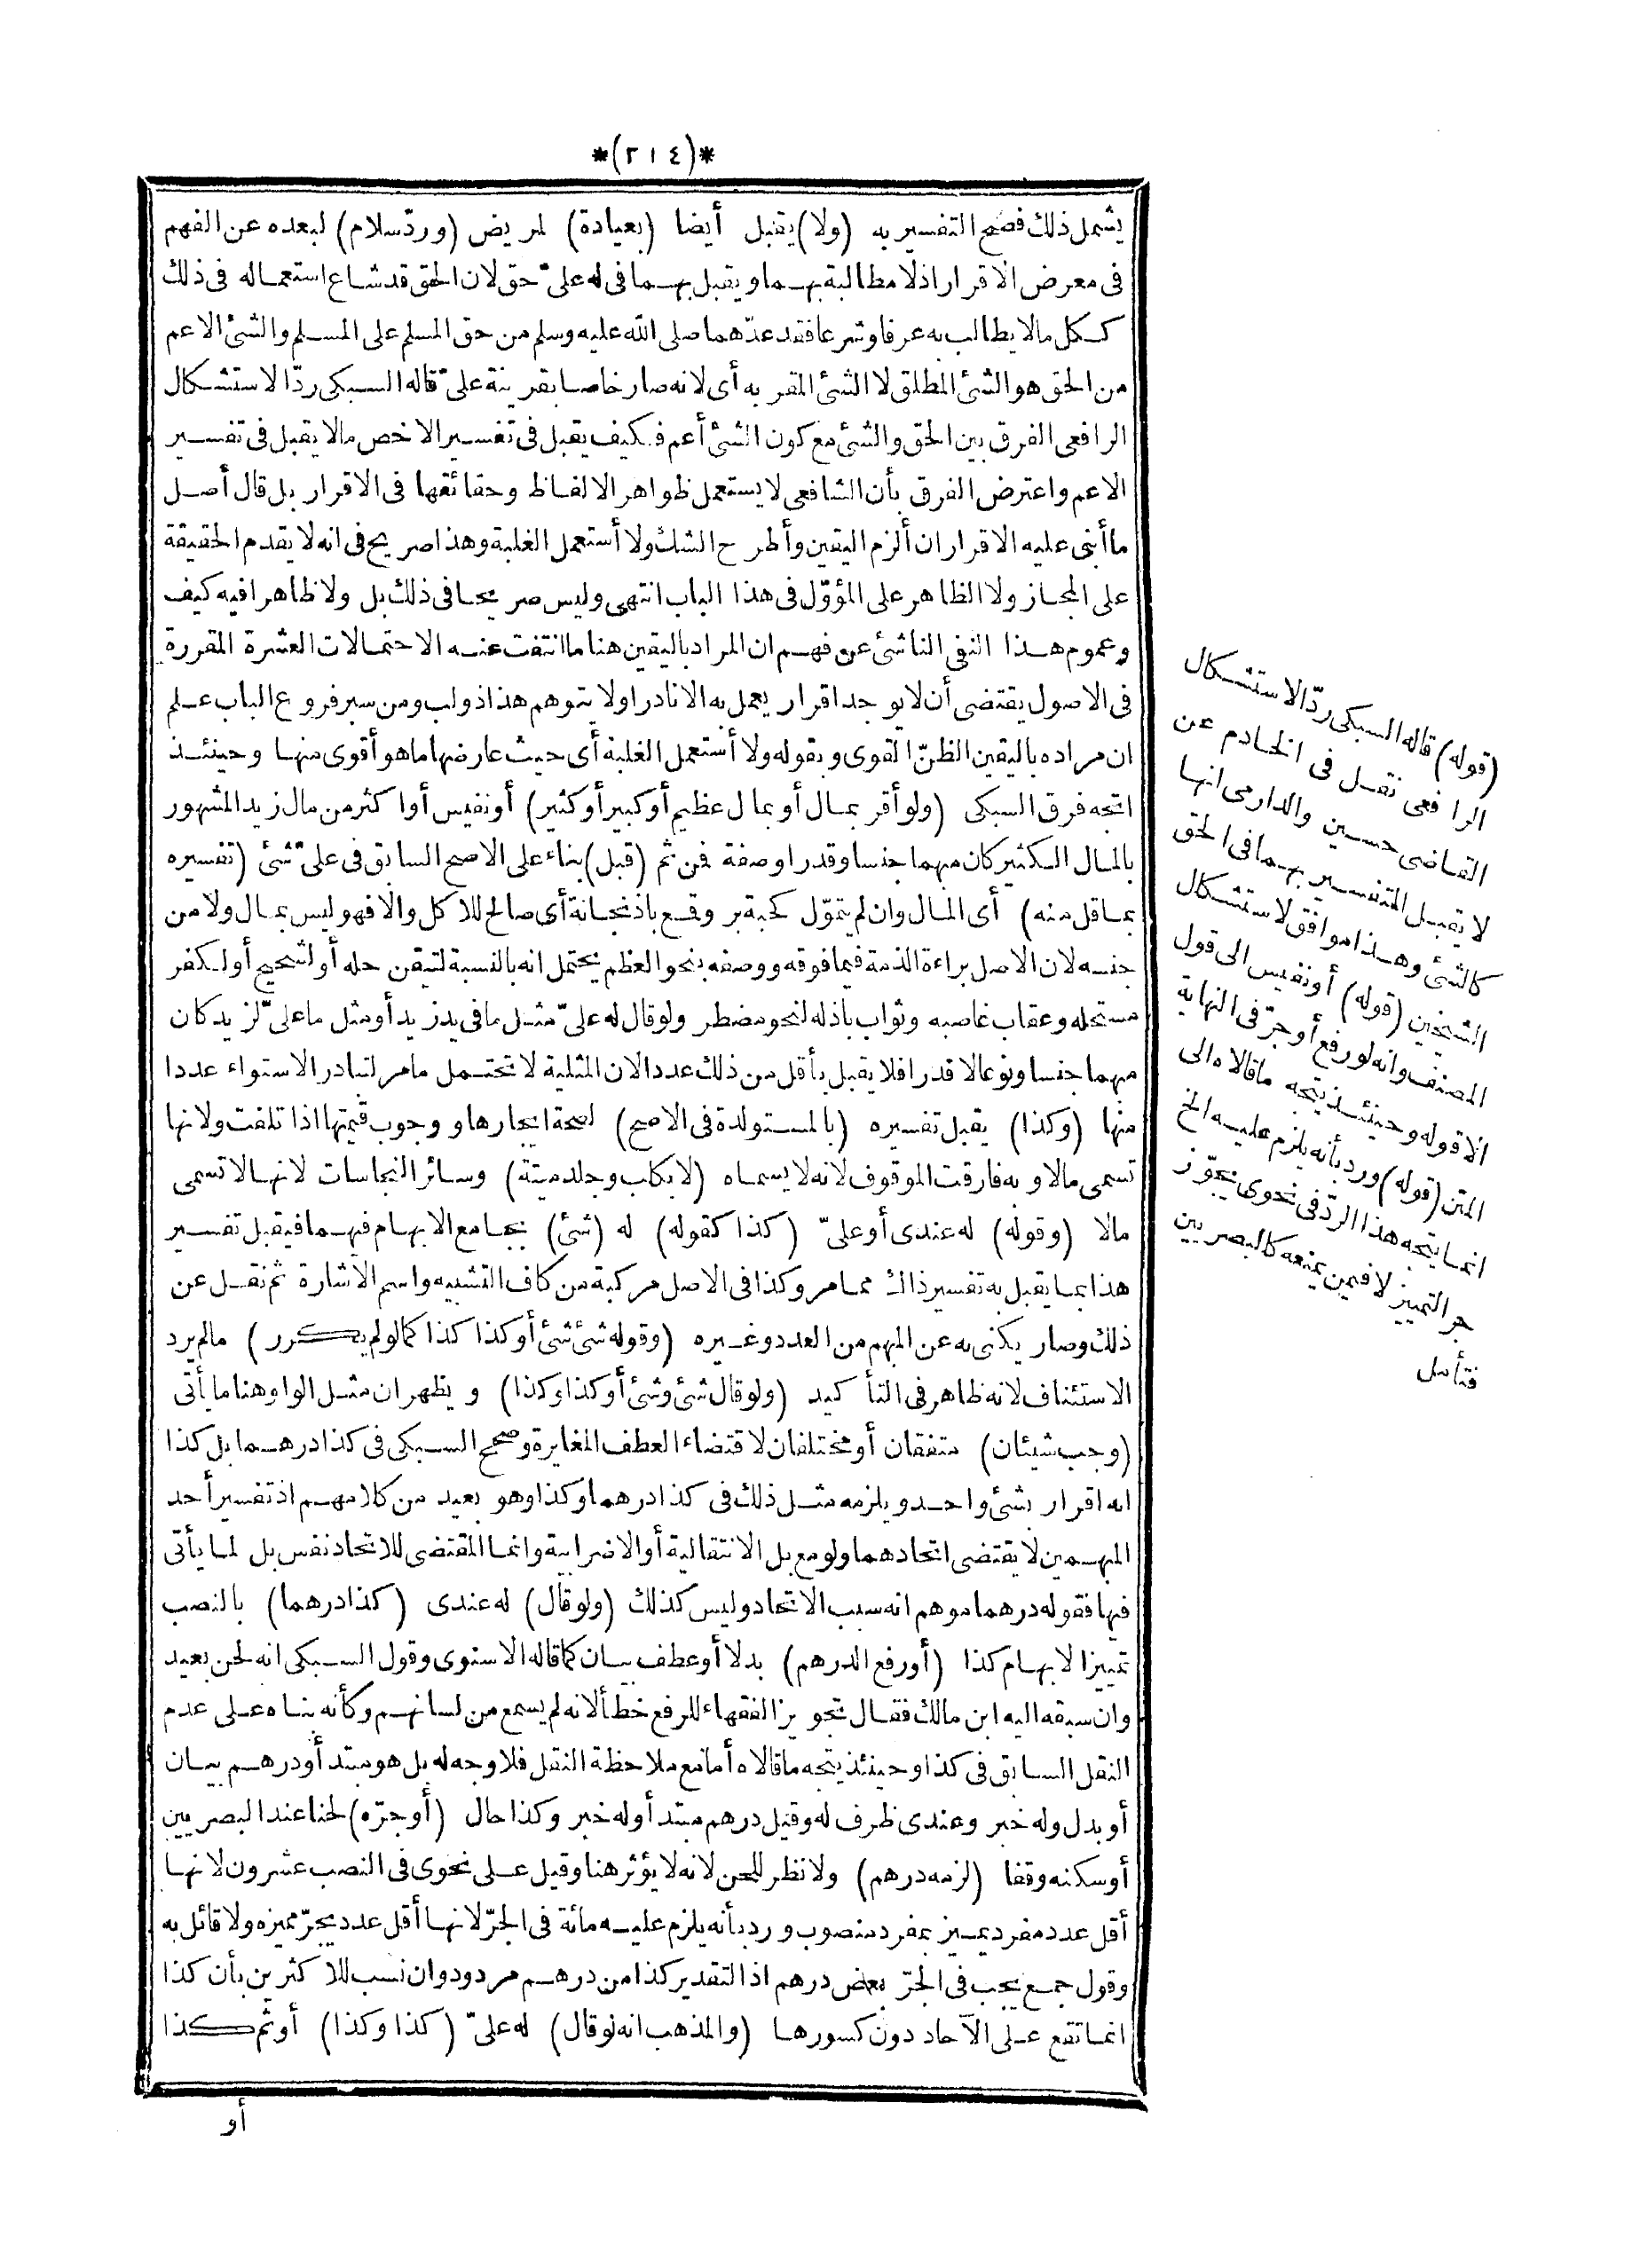 *(٢١٤)*
يشمل ذلك فصح التفسير به (ولا) يقبل أيضا (بعيادة) لمريض (وردّ سلام) لبعده عن الفهم
فى معرض الاقرار اذ لا مطالبة بهما ويقبل بهما فى له علىّ حق لان الحق قد شاع استعماله فى ذلك
ككل ما لا يطالب به عرفا وشرعا فقد عدّهما صلى الله عليه وسلم من حق المسلم على المسلم والشئ الاعم
من الحق هو الشئ المطلق لا الشئ المقر به أى لانه صار خاصا بقرينة علىّ قاله السبكى ردّا لاستشكال
الرافعى الفرق بين الحق والشئ مع كون الشئ أعم فكيف يقبل فى تفسير الاخص ما لا يقبل فى تفسير
الاعم واعترض الفرق بأن الشافعى لا يستعمل ظواهر الالفاظ وحقائقها فى الاقرار بل قال أصل
ما أبنى عليه الاقرار ان ألزم اليقين وأطرح الشك ولا أستعمل الغلبة وهذا صريح فى انه لا يقدم الحقيقة
على المجاز ولا الظاهر على المؤوّل فى هذا الباب انتهى وليس صريحا فى ذلك بل ولا ظاهرا فيه كيف
وعموم هذا النفى الناشئ عن فهم ان المراد باليقين هنا ما انتفت عنه الاحتمالات العشرة المقررة
فى الاصول يقتضى أن لا يوجد اقرار يعمل به الا نادرا ولا يتوهم هذا ذو لب ومن سبر فروع الباب علم
ان مراده باليقين الظنّ القوى وبقوله ولا أستعمل الغلبة أى حيث عارضها ما هو أقوى منها وحينئذ
اتجه فرق السبكى (ولو أقر بمال أو بمال عظيم أو كبير أو كثير) أو نفيس أو اكثر من مال زيد المشهور
بالمال الكثير كان مبهما جنسا وقدرا وصفة فمن ثم (قبل) بناء على الاصح السابق فى علىّ شئ (تفسيره
بما قل منه) أى المال وان لم يتموّل كحبة بر وقمع باذنجانة أى صالح للاكل والا فهو ليس بمال ولا من
جنسه لان الاصل براءة الذمة فيما فوقه ووصفه بنحو العظم يحتمل انه بالنسبة لتيقن حله أو لشحيح أو لكفر
مستحله وعقاب غاصبه وثواب باذله لنحو مضطر ولو قال له علىّ مثل ما فى يد زيد أو مثل ما علىّ لزيد كان
مبهما جنسا ونوعا لا قدرا فلا يقبل بأقل من ذلك عددا لان المثلية لا تحتمل ما مر لتبادر الاستواء عددا
منها (وكذا) يقبل تفسيره (بالمستولدة فى الاصح) لصحة ايجارها ووجوب قيمتها اذا تلفت ولانها
تسمى مالا وبه فارقت الموقوف لانه لا يسماه (لا بكلب وجلد ميتة) وسائر النجاسات لانها لا تسمى
مالا (وقوله) له عندى أو علىّ (كذا كقوله) له (شئ) بجامع الابهام فيهما فيقبل تفسير
هذا بما يقبل به تفسير ذاك مما مر وكذا فى الاصل مركبة من كاف التشبيه واسم الاشارة ثم نقل عن
ذلك وصار يكنى به عن المبهم من العدد وغيره (وقوله شئ شئ أو كذا كذا كما لو لم يكرر) ما لم يرد
الاستئناف لانه ظاهر فى التأكيد (ولو قال شئ وشئ أو كذا وكذا) ويظهر ان مثل الواو هنا ما يأتى
(وجب شيئان) متفقان أو مختلفان لاقتضاء العطف المغايرة وصحح السبكى فى كذا درهما بل كذا
انه اقرار بشئ واحد ويلزمه مثل ذلك فى كذا درهما وكذا وهو بعيد من كلامهم اذ تفسير أحد
المبهمين لا يقتضى اتحادهما ولو مع بل الانتقالية أو الاضرابية وانما المقتضى للاتحاد نفس بل لما يأتى
فيها فقوله درهما موهم انه سبب الاتحاد وليس كذلك (ولو قال) له عندى (كذا درهما) بالنصب
تمييزا لابهام كذا (أو رفع الدرهم) بدلا أو عطف بيان كما قاله الاسنوى وقول السبكى انه لحن بعيد
وان سبقه اليه ابن مالك فقال تجويز الفقهاء للرفع خطأ لانه لم يسمع من لسانهم وكأنه بناه على عدم
النقل السابق فى كذا وحينئذ يتجه ما قالاه أما مع ملاحظة النقل فلا وجه له بل هو مبتدأ ودرهم بيان
أو بدل وله خبر وعندى ظرف له وقيل درهم مبتدأ وله خبر وكذا حال (أو جرّه) لحنا عند البصريين
أو سكنه وقفا (لزمه درهم) ولا نظر للحن لانه لا يؤثر هنا وقيل على نحوى فى النصب عشرون لانها
أقل عدد مفرد يميز بمفرد منصوب ورد بأنه يلزم عليه مائة فى الجرّ لانها أقل عدد يجرّ مميزه ولا قائل به
وقول جمع يجب فى الجرّ بعض درهم اذ التقدير كذا من درهم مردود وان نسب للاكثرين بأن كذا
انما تقع على الآحاد دون كسورها (والمذهب انه لو قال) له علىّ (كذا وكذا) أو ثم كذا
أو
(قوله) قاله السبكى ردّا لاستشكال
الرافعى نقل فى الخادم عن
القاضى حسين والدارمى انها
لا يقبل التفسير بهما فى الحق
كالشئ وهذا موافق لاستشكال
الشيخين (قوله) أو نفيس الى قول
المصنف وانه لو رفع أو جرّ فى النهاية
الا قوله وحينئذ يتجه ما قالاه الى
المتن (قوله) ورد بأنه يلزم عليه الخ
انما يتجه هذا الردّ فى نحوى يجوّز
جر التمييز لا فيمن يمنعه كالبصريين
فتأمل